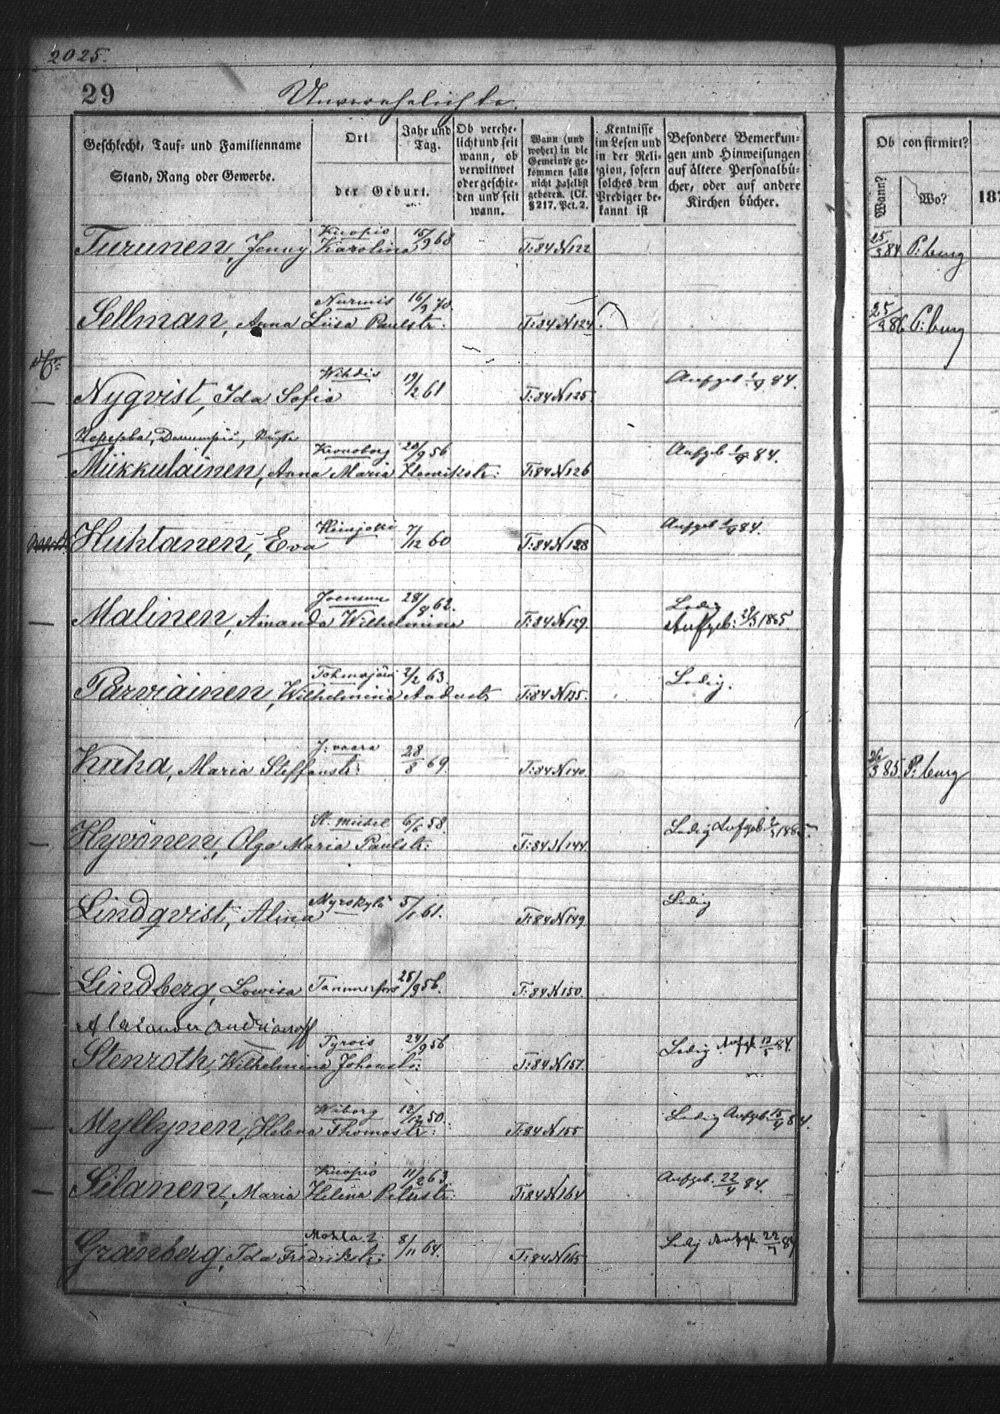 2025.
29
Unverehelichte.
Geschlecht, Tauf- und Familienname
Stand, Rang oder Gewerbe.
Ort
Jahr und Tag.
der Geburt.
Ob verehe-
licht und seit
wann, ob
verwitwet
oder geschie-
den und seit
wann.
Wann (und
woher) in die
Gemeinde ge-
kommen falls
nicht daselbst
geboren. (Cf.
§ 217, Pct. 2.
Kentnisse
im Lesen und
in der Reli-
gion, sofern
solches dem
Prediger be-
kannt ist
Besondere Bemerkun-
gen und Hinweisungen
auf ältere Personalbü-
cher, oder auf andere
Kirchen bücher.
Ob confirmirt?
Wann?
Wo?
187
Kuopio 15/9 68
Turunen, Jenny Karolina T:84 N122 25/3 84 P:burg
Nurmis 16/9 70.
Sellman, Anna Liisa Paulstr: T:84 N124. 25/3 86 P:burg
Wihdis 19/2 61 Aufgeb 1/4 84.
Nyqvist, Ida Sofia T:84 N125
Kronoborg 20/9 56 Aufgeb 1/4 84.
Miikkulainen, Anna Maria Henrikstr: T:84 N126
Heinjoki 7/12 60 Aufgeb 1/4 84.
Huhtanen, Eva T:84 N128
Joensuu 28/8 62. Ledig
Malinen, Amanda Wilhelmina T:84 N129. Aufgeb: 24/3 1885.
Tohmajärvi 2/2 63 Ledig.
Parviainen, Wilhelmina Aadustr T:84 N135.
J:vaara 28/8 69
Kuha, Maria Steffanstr: T:84 N140. 26/3 85 P:burg
St. Michel 6/6 58. Ledig Aufgeb 2/3 1885.
Hyvönen, Olga Maria Paulstr: T:84 N144
Myrskylä 5/1 61. Ledig
Lindqvist, Alina T:84 N149
Lindberg, Lowisa Tammerfors 25/9 56. T:84 N150.
Alexander Andrianoff
Tyrvis 24/9 56 Ledig Aufgb 13/5 84.
Stenroth, Wilhelmina Johanstr: T:84 N151.
Wiborg 12/12 50. Ledig Aufgeb. 15/4 84.
Myllynen, Helena Thomastr: T:84 N155
Kuopio 11/2 63. Aufgeb. 22/4 84.
Silanen, Maria Helina Peterstr: T:84 N164
Mohla 2 8/11 64. Ledig Aufgb. 22/4 84
Granberg, Ida Fredrikstr: T:84 N165